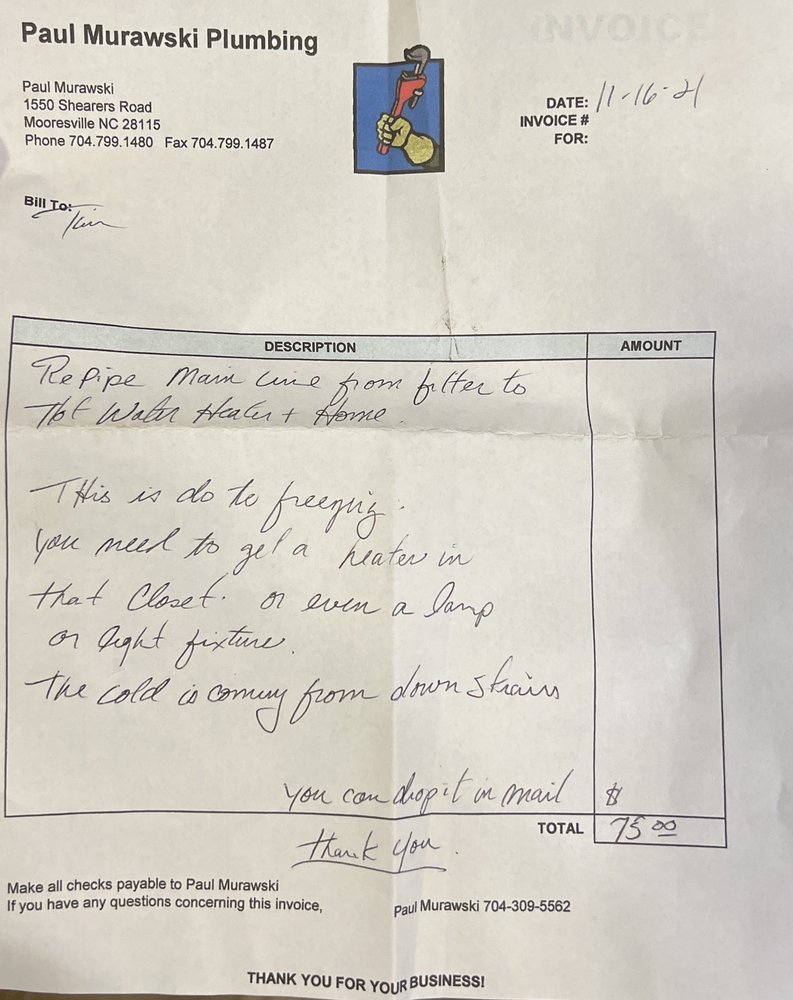 INVOICE
Paul Murawski Plumbing
Paul Murawski
1550 Shearers Road
Mooresville NC 28115
Phone 704.799.1480 Fax 704.799.1487
DATE: 11-16-21
INVOICE #
FOR:
Bill To:
DESCRIPTION AMOUNT
RePipe Main Line from filter to
Hot Water Heater + Home.
THis is do to freezing.
You need to get a heater in
that Closet. or even a lamp
or light fixture.
The cold is coming from down strairs
You can drop it in mail $
TOTAL 75 00
Thank You.
Make all checks payable to Paul Murawski
If you have any questions concerning this invoice, Paul Murawski 704-309-5562
THANK YOU FOR YOUR BUSINESS!